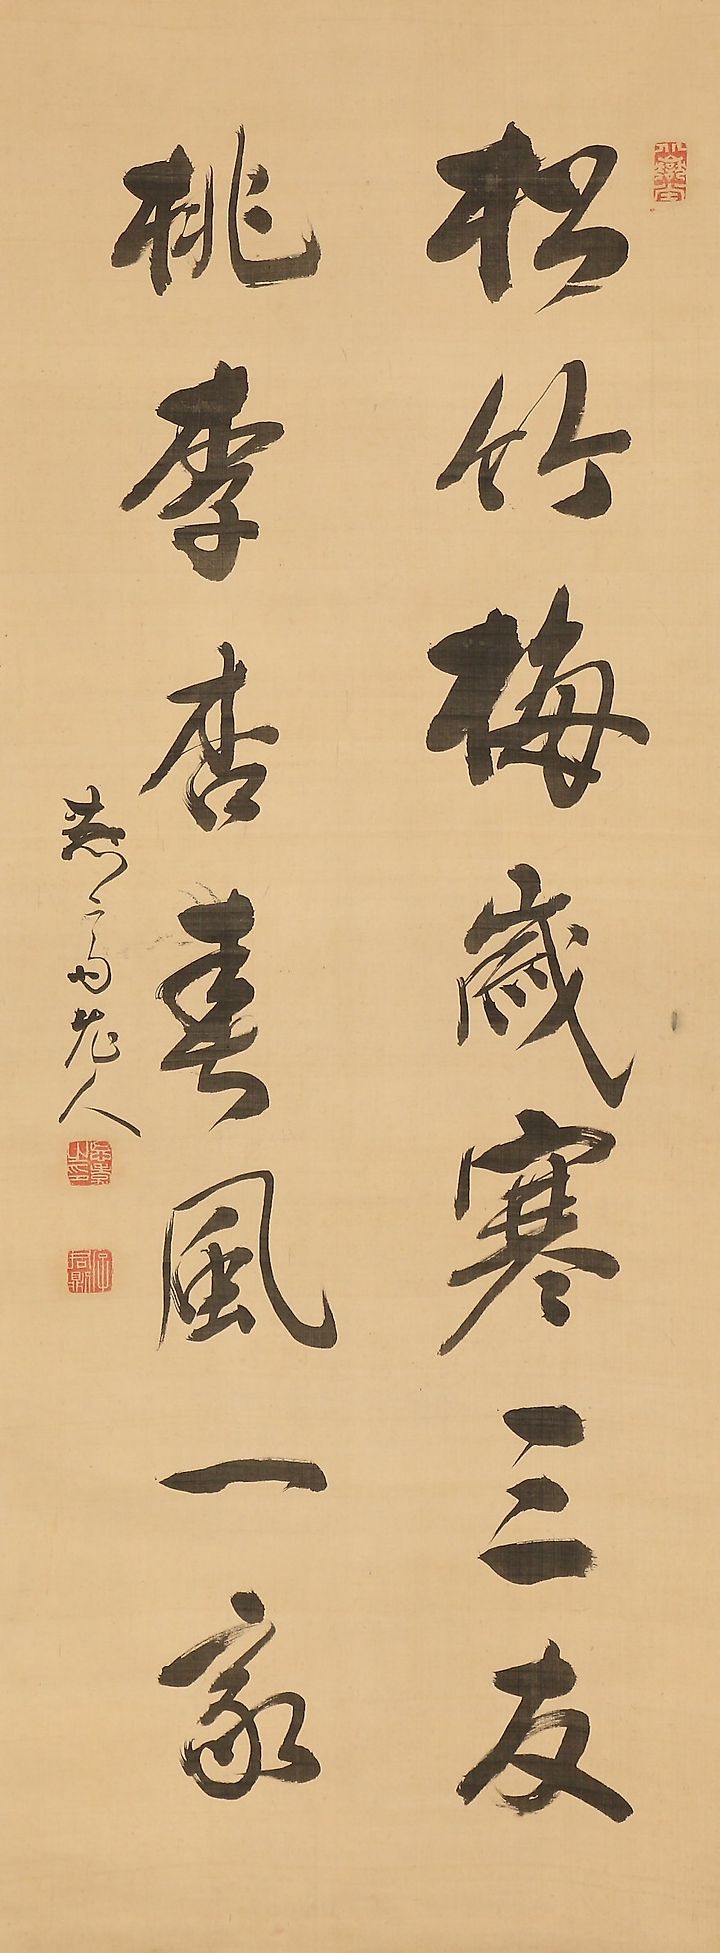 松竹梅歳寒三友
桃李杏春風一家
老人